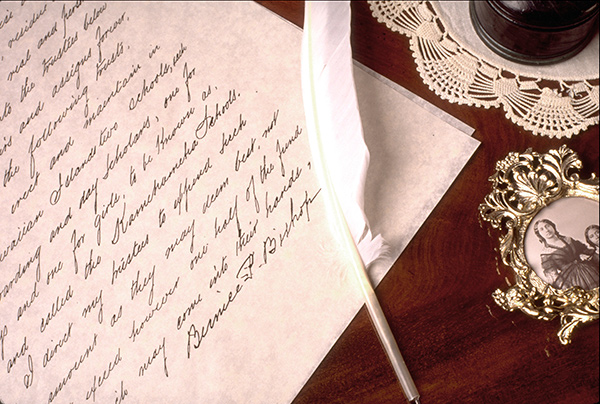 residue
real and
to the trustees below
and assigns forever,
the following trusts,
erect and maintain in
waiian Islands two schools, each
oarding and day scholars, one for
ys and one for girls, to be known as,
and called the Kamehameha Schools.
I direct my trustees to expend such
amount as they may deem best, not
exceed however one half of the fund
ch may come into their hands,
Bernice P. Bishop